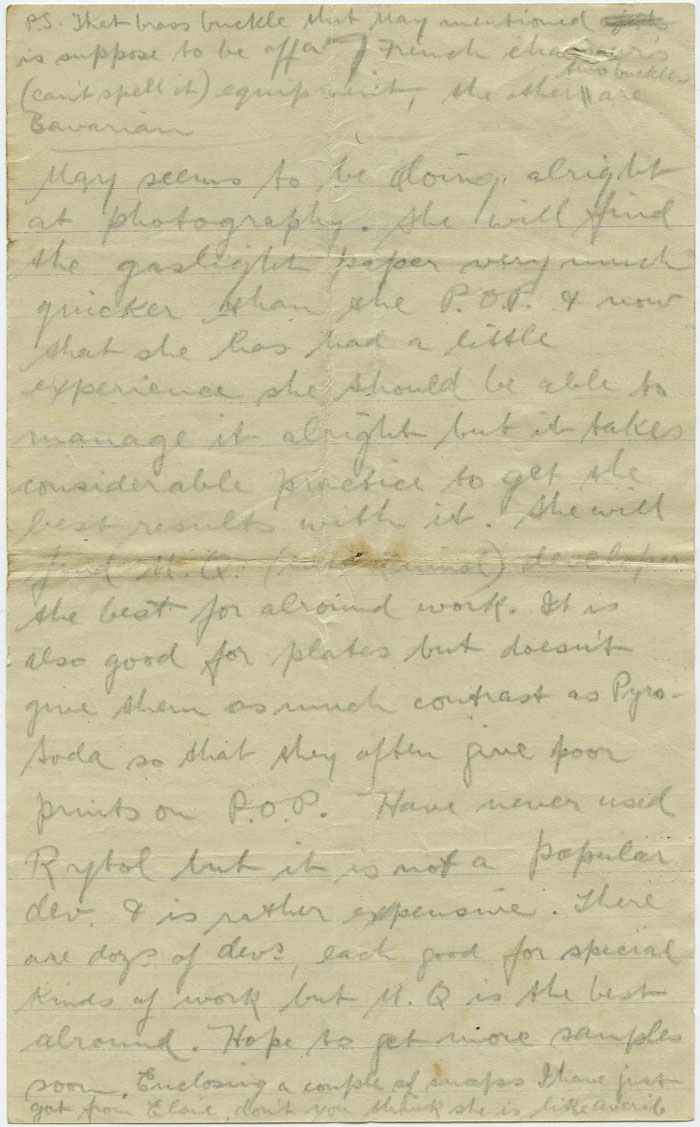 P.S. That brass buckle that May mentioned
is suppose to be off a French chasseur's
(can't spell it) equipment, the other two buckles are
Bavarian
May seems to be doing alright
at photography. She will find
the gaslight paper very much
quicker than the P.O.P. & now
that she has had a little
experience she should be able to
manage it alright but it takes
considerable practice to get the
best results with it. She will
find M.Q. developer
the best for alround work. It is
also good for plates but doesn't
give them as much contrast as Pyro-
Soda so that they often give poor
prints on P.O.P. Have never used
Rytol but it is not a popular
dev. & is rather expensive. There
are dozs of devs, each good for special
kinds of work but M.Q is the best
alround. Hope to get more samples
soon. Enclosing a couple of snaps I have just
got from Elsie, don't you think she is like